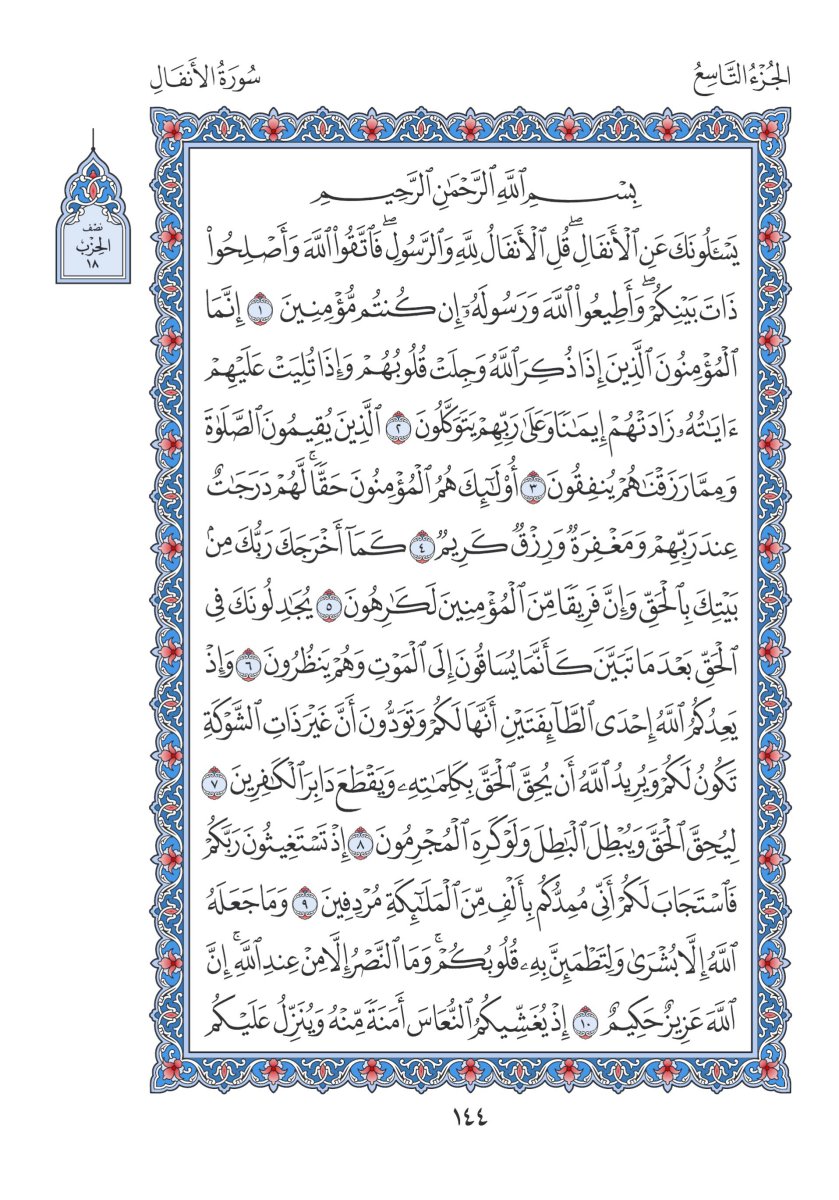 الجُزْءُ التَّاسِعُ
سُورَةُ الأَنفَالِ
نصف
الحِزْب
١٨
بِسْمِ ٱللَّهِ ٱلرَّحْمَٰنِ ٱلرَّحِيمِ
يَسْـَٔلُونَكَ عَنِ ٱلْأَنفَالِۖ قُلِ ٱلْأَنفَالُ لِلَّهِ وَٱلرَّسُولِۖ فَٱتَّقُوا۟ ٱللَّهَ وَأَصْلِحُوا۟
ذَاتَ بَيْنِكُمْۖ وَأَطِيعُوا۟ ٱللَّهَ وَرَسُولَهُۥٓ إِن كُنتُم مُّؤْمِنِينَ ١ إِنَّمَا
ٱلْمُؤْمِنُونَ ٱلَّذِينَ إِذَا ذُكِرَ ٱللَّهُ وَجِلَتْ قُلُوبُهُمْ وَإِذَا تُلِيَتْ عَلَيْهِمْ
ءَايَٰتُهُۥ زَادَتْهُمْ إِيمَٰنًا وَعَلَىٰ رَبِّهِمْ يَتَوَكَّلُونَ ٢ ٱلَّذِينَ يُقِيمُونَ ٱلصَّلَوٰةَ
وَمِمَّا رَزَقْنَٰهُمْ يُنفِقُونَ ٣ أُو۟لَٰٓئِكَ هُمُ ٱلْمُؤْمِنُونَ حَقًّاۚ لَّهُمْ دَرَجَٰتٌ
عِندَ رَبِّهِمْ وَمَغْفِرَةٌ وَرِزْقٌ كَرِيمٌ ٤ كَمَآ أَخْرَجَكَ رَبُّكَ مِنۢ
بَيْتِكَ بِٱلْحَقِّ وَإِنَّ فَرِيقًا مِّنَ ٱلْمُؤْمِنِينَ لَكَٰرِهُونَ ٥ يُجَٰدِلُونَكَ فِى
ٱلْحَقِّ بَعْدَ مَا تَبَيَّنَ كَأَنَّمَا يُسَاقُونَ إِلَى ٱلْمَوْتِ وَهُمْ يَنظُرُونَ ٦ وَإِذْ
يَعِدُكُمُ ٱللَّهُ إِحْدَى ٱلطَّآئِفَتَيْنِ أَنَّهَا لَكُمْ وَتَوَدُّونَ أَنَّ غَيْرَ ذَاتِ ٱلشَّوْكَةِ
تَكُونُ لَكُمْ وَيُرِيدُ ٱللَّهُ أَن يُحِقَّ ٱلْحَقَّ بِكَلِمَٰتِهِۦ وَيَقْطَعَ دَابِرَ ٱلْكَٰفِرِينَ ٧
لِيُحِقَّ ٱلْحَقَّ وَيُبْطِلَ ٱلْبَٰطِلَ وَلَوْ كَرِهَ ٱلْمُجْرِمُونَ ٨ إِذْ تَسْتَغِيثُونَ رَبَّكُمْ
فَٱسْتَجَابَ لَكُمْ أَنِّى مُمِدُّكُم بِأَلْفٍ مِّنَ ٱلْمَلَٰٓئِكَةِ مُرْدِفِينَ ٩ وَمَا جَعَلَهُ
ٱللَّهُ إِلَّا بُشْرَىٰ وَلِتَطْمَئِنَّ بِهِۦ قُلُوبُكُمْۚ وَمَا ٱلنَّصْرُ إِلَّا مِنْ عِندِ ٱللَّهِۚ إِنَّ
ٱللَّهَ عَزِيزٌ حَكِيمٌ ١٠ إِذْ يُغَشِّيكُمُ ٱلنُّعَاسَ أَمَنَةً مِّنْهُ وَيُنَزِّلُ عَلَيْكُم
١٤٤